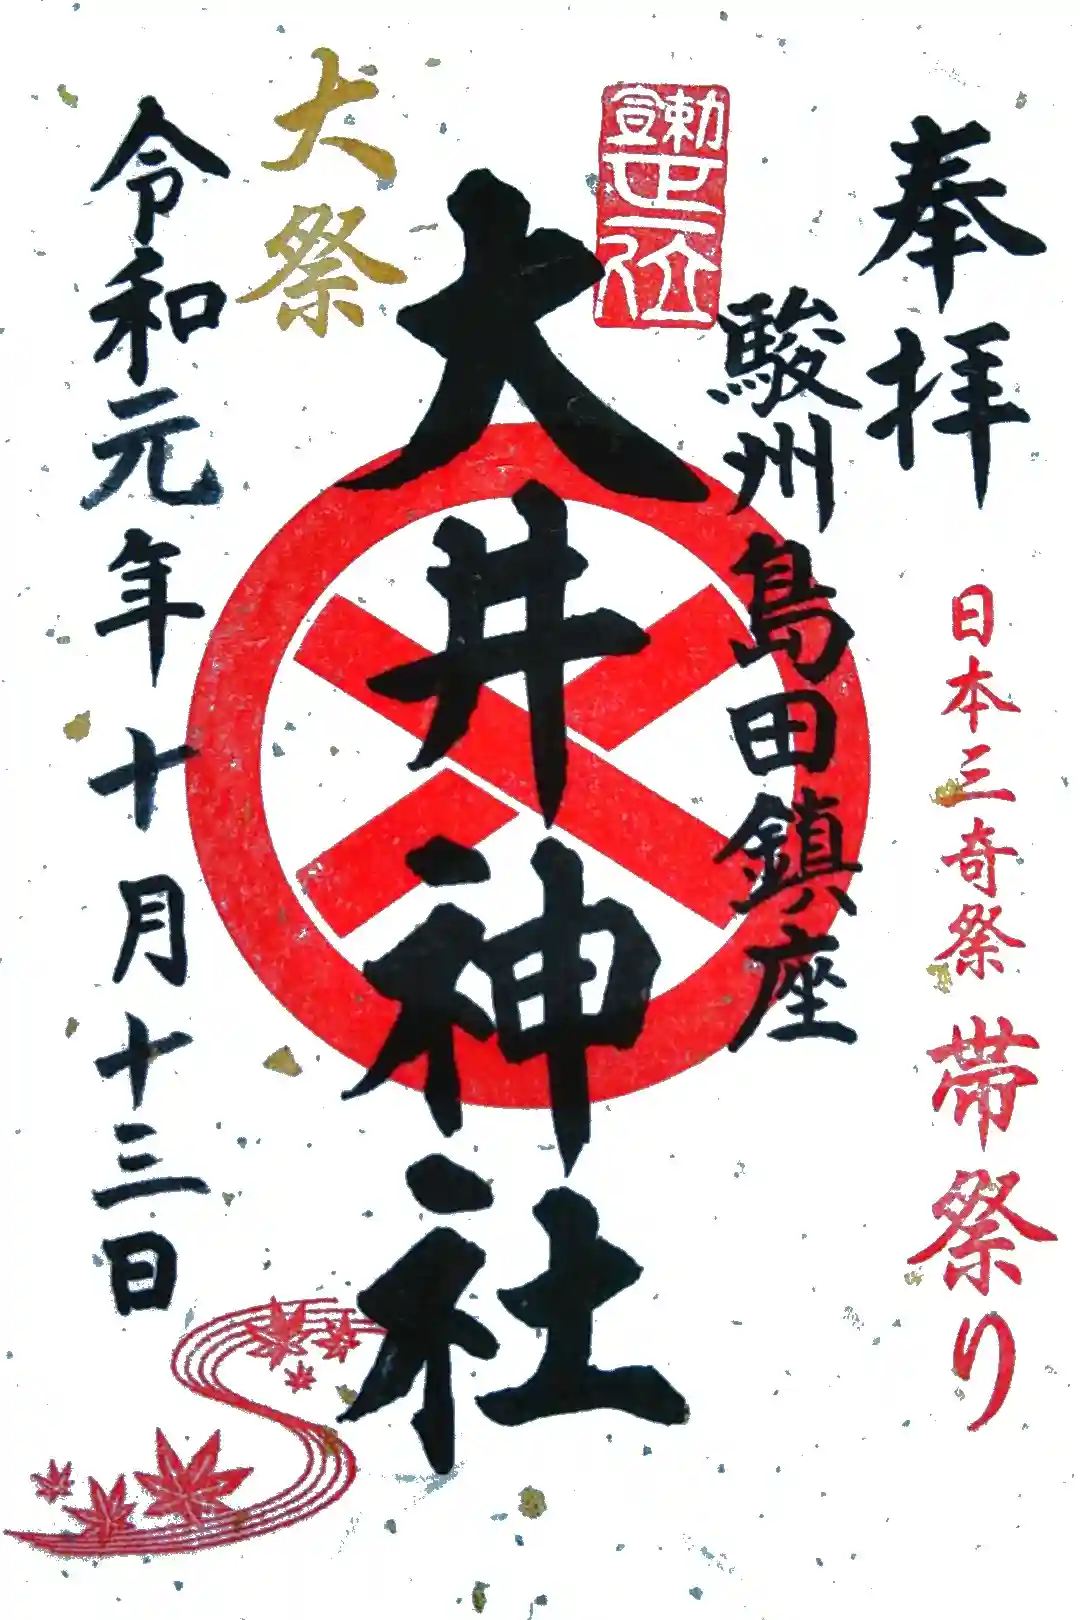 奉拝
日本三奇祭 帯祭り
勅宣正一位
駿州島田鎮座
大井神社
大祭
令和元年十月十三日